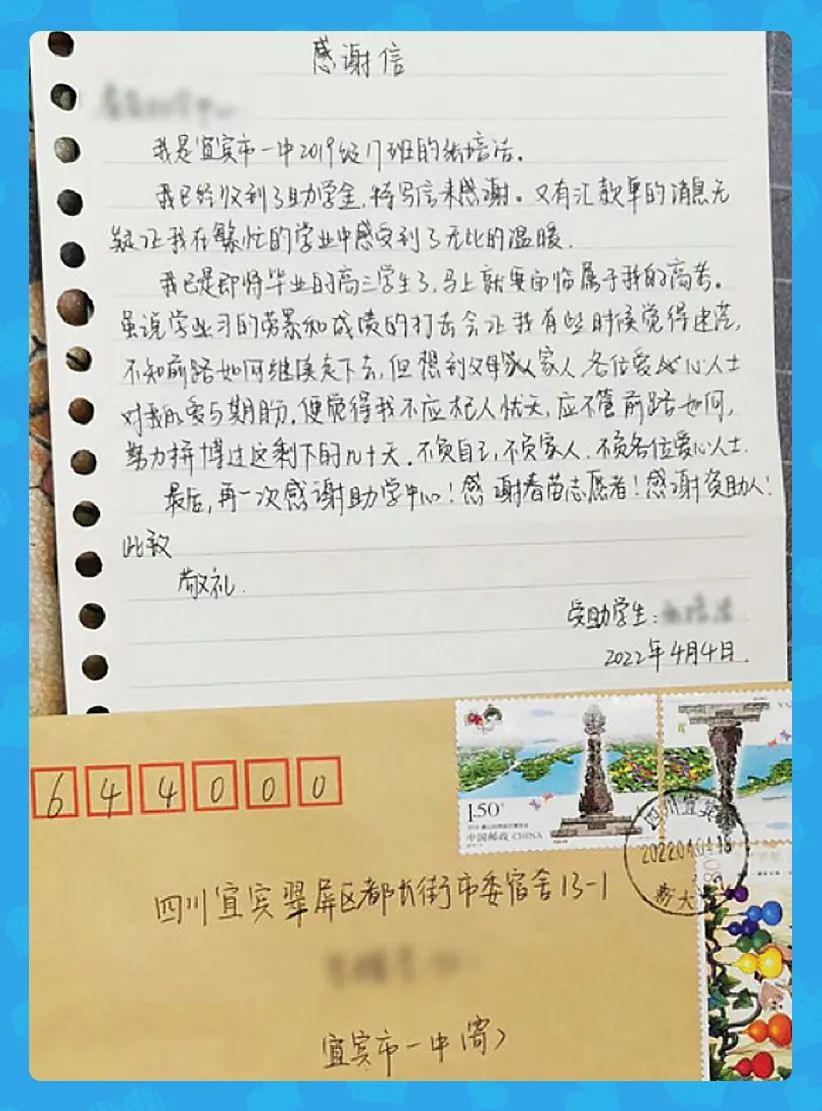 感谢信
我是宜宾市一中2019级17班的张培洁。
我已经收到了助学金,特写信来感谢。又有汇款单的消息无
疑让我在繁忙的学业中感受到了无比的温暖.
我已是即将毕业的高三学生了,马上就要面临属于我的高考。
虽说学业习的劳累和成绩的打击会让我有些时候觉得迷茫,
不知前路如何继续走下去,但想到父母家人家人 各位爱心人士
对我的爱与期盼,便觉得我不应杞人忧天,应不管前路如何,
努力拼博过这剩下的几十天.不负自己,不负家人,不负各位爱心人士.
最后,再一次感谢助学中心!感谢春苗志愿者!感谢资助人!
此致
敬礼.
受助学生:
2022年4月4日.
644000
1.50元
中国邮政 CHINA
四川宜宾
2022.04.04.18
四川宜宾翠屏区都长街市委宿舍13-1
宜宾市一中(寄)